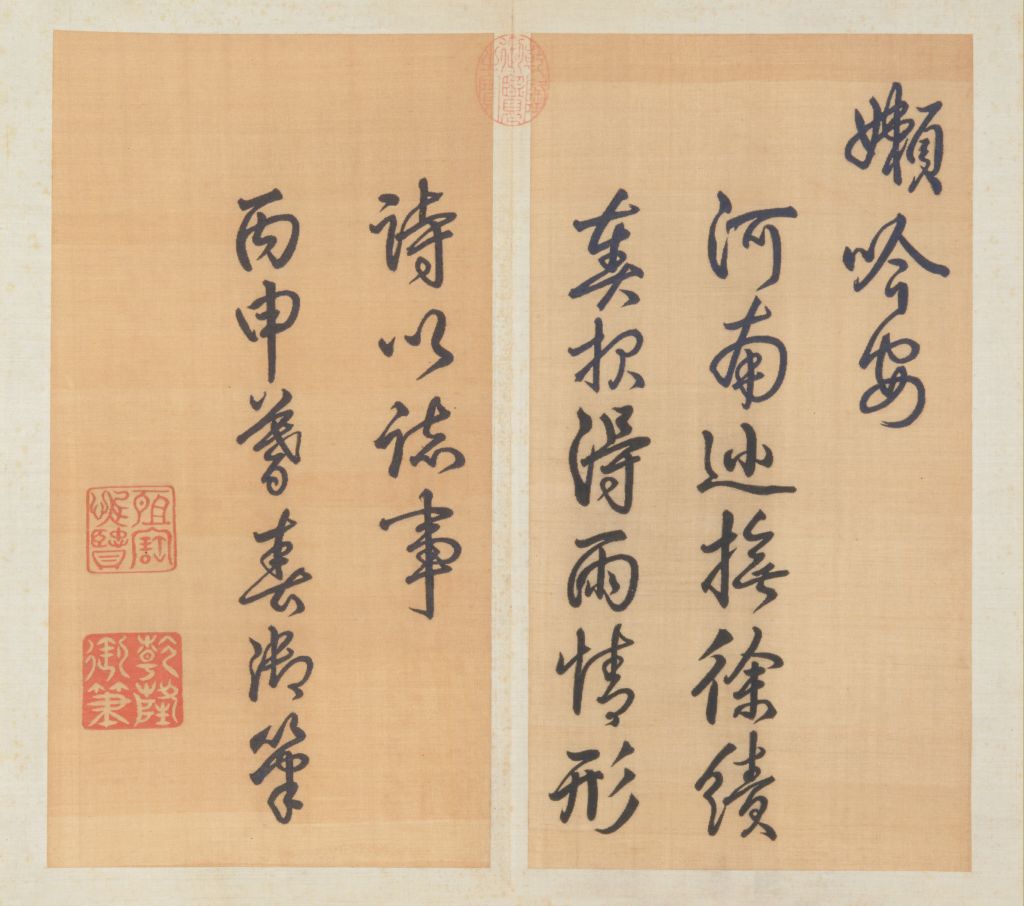 嬾吟安
河南巡撫徐績
奏報得雨情形
詩以誌事
丙申暮春御筆
乾隆御覽之寶
所寶惟賢
乾隆御筆